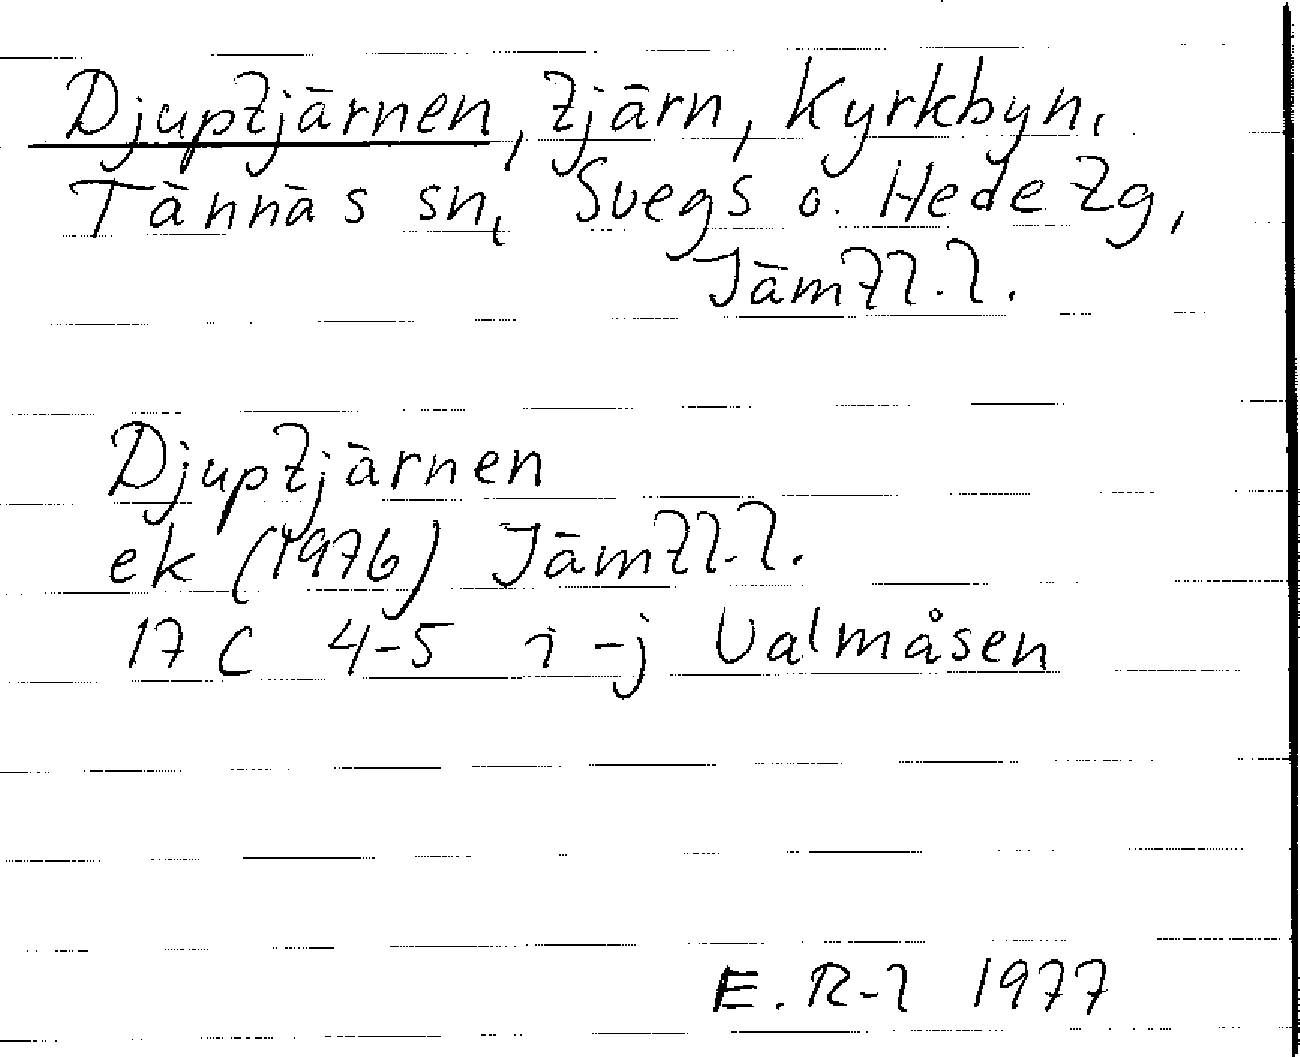 Djuptjärnen, tjärn, Kyrkbyn,
Tännäs sn, Svegs o. Hede tg,
Jämtl.l.
Djuptjärnen
ek (1976) Jämtl.l.
17 C 4-5 i-j Valmåsen
E. R-l 1977